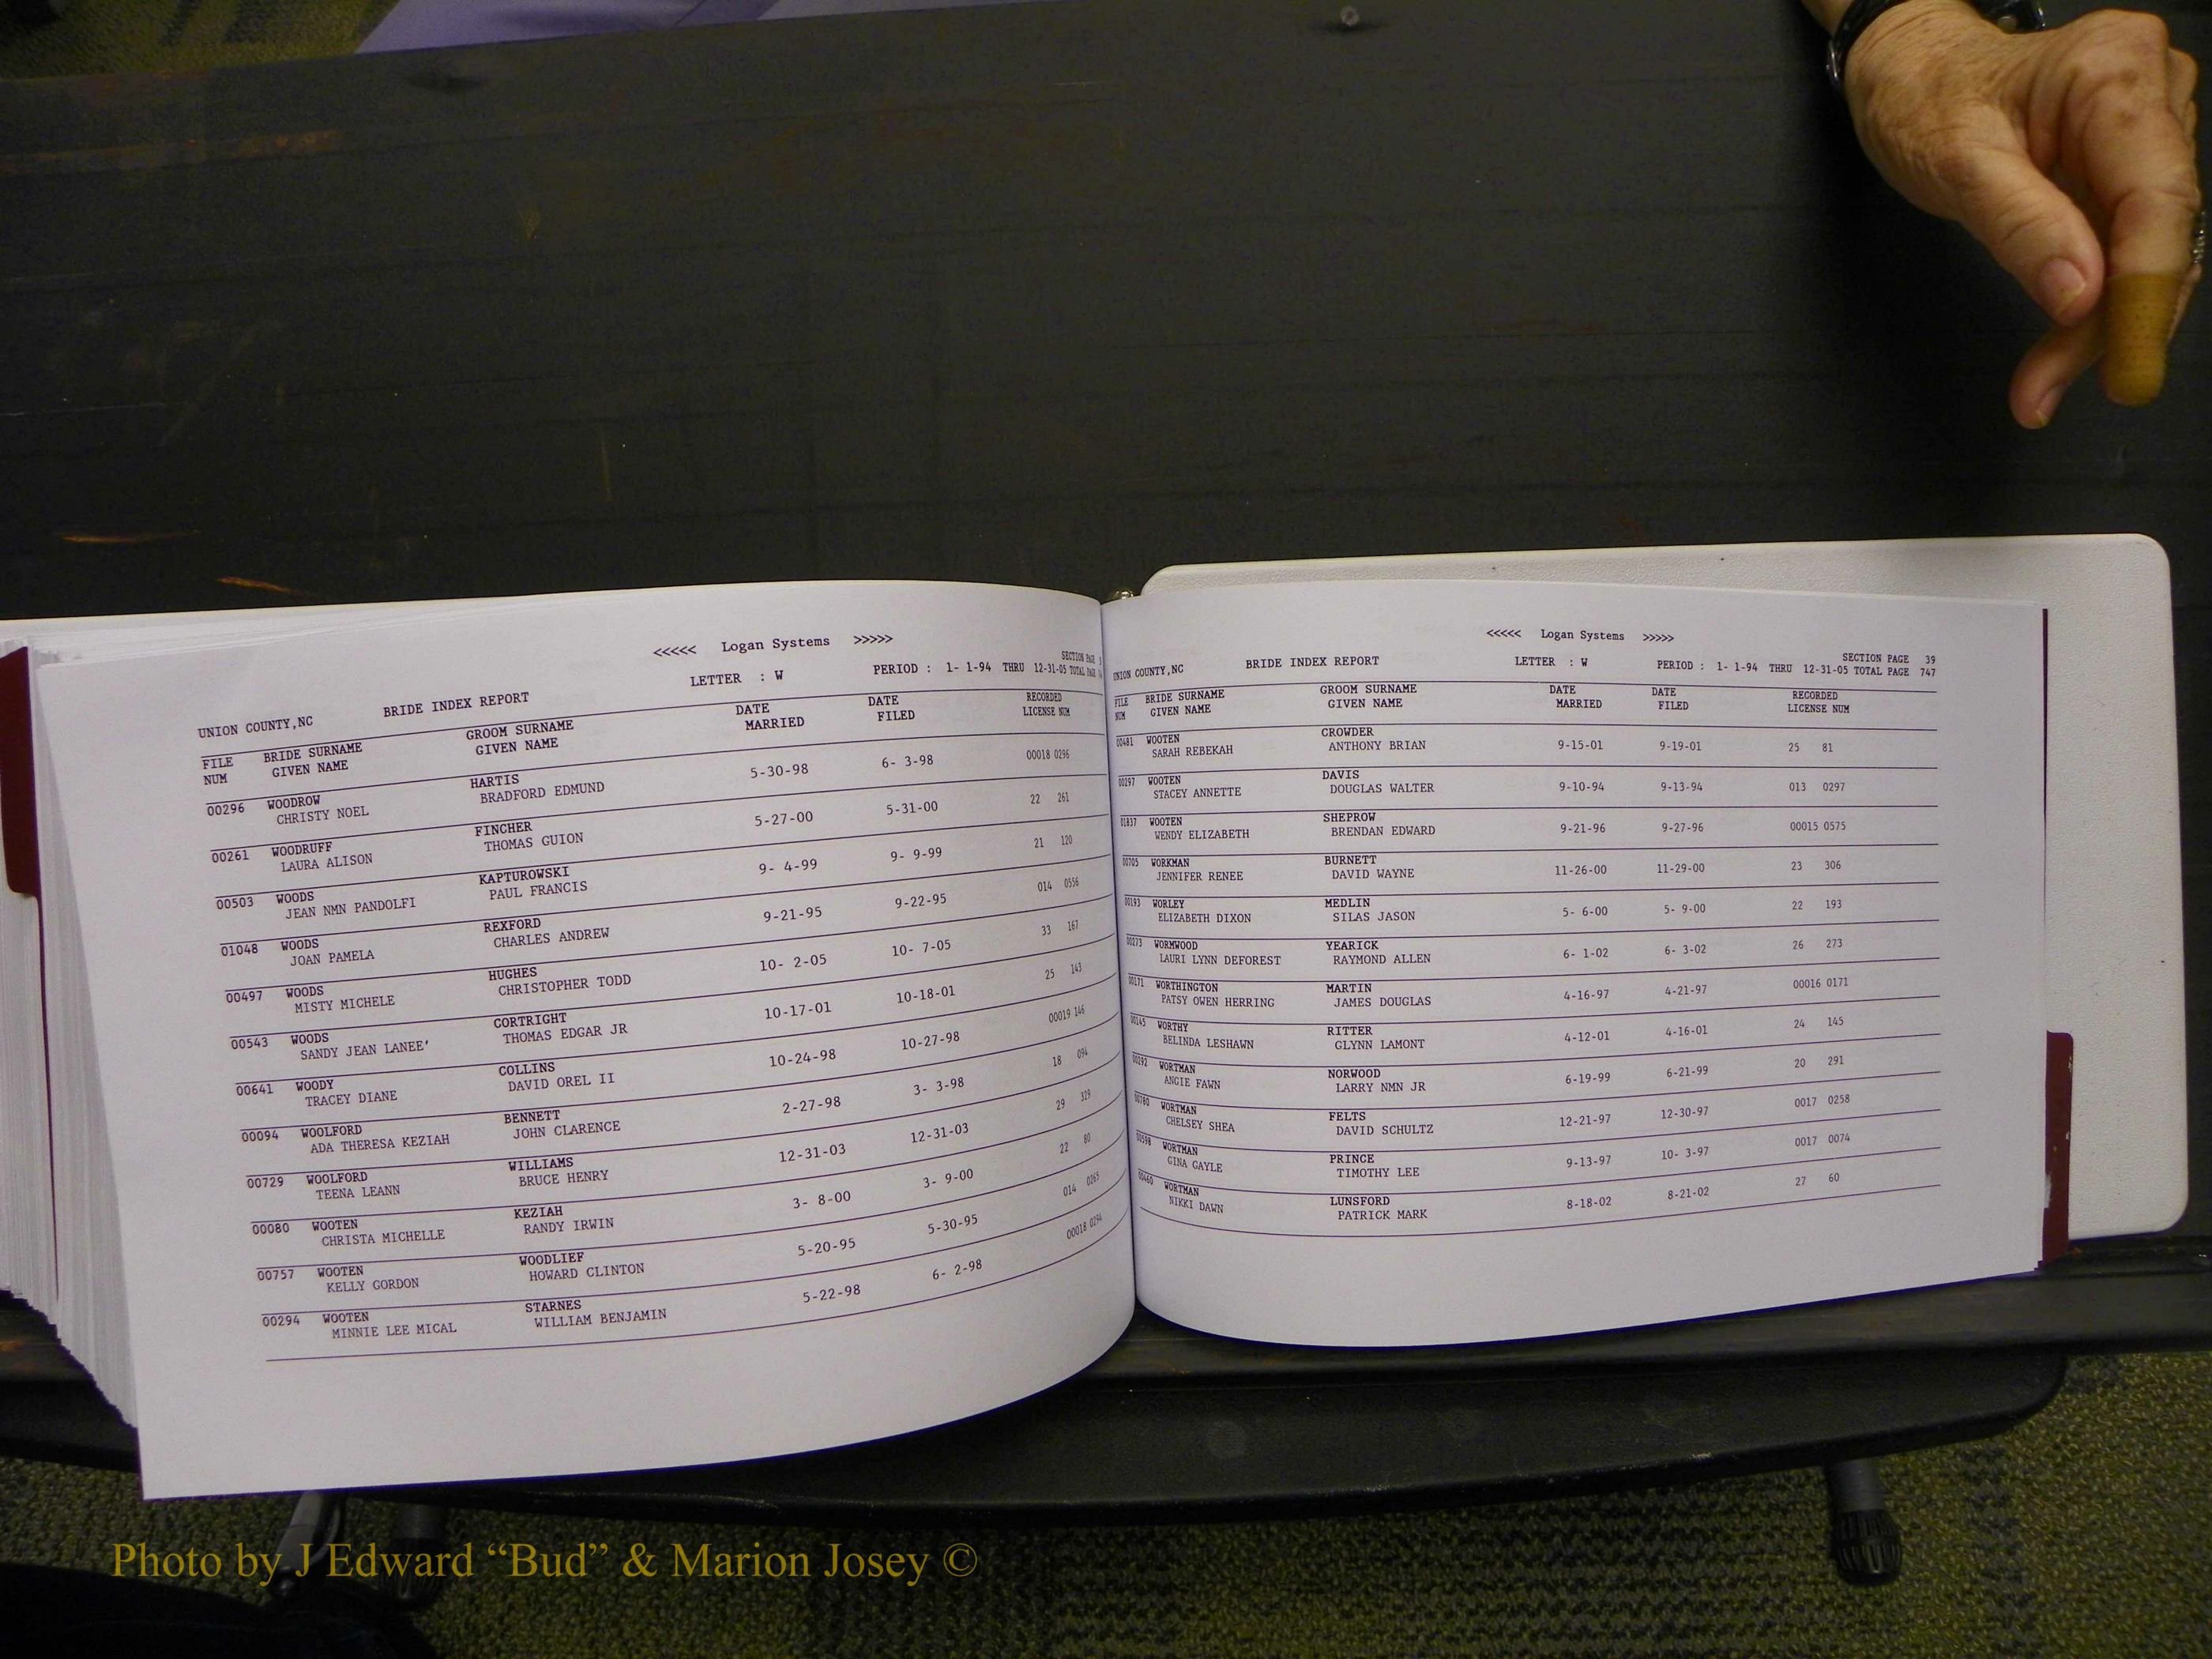 <<<<< Logan Systems >>>>>
UNION COUNTY,NC BRIDE INDEX REPORT LETTER : W PERIOD : 1- 1-94 THRU 12-31-05 TOTAL PAGE
SECTION PAGE
FILE BRIDE SURNAME GROOM SURNAME DATE DATE RECORDED
NUM GIVEN NAME GIVEN NAME MARRIED FILED LICENSE NUM
00296 WOODROW HARTIS 5-30-98 6- 3-98 00018 0296
CHRISTY NOEL BRADFORD EDMUND
00261 WOODRUFF FINCHER 5-27-00 5-31-00 22 261
LAURA ALISON THOMAS GUION
00503 WOODS KAPTUROWSKI 9- 4-99 9- 9-99 21 120
JEAN NMN PANDOLFI PAUL FRANCIS
01048 WOODS REXFORD 9-21-95 9-22-95 014 0556
JOAN PAMELA CHARLES ANDREW
00497 WOODS HUGHES 10- 2-05 10- 7-05 33 167
MISTY MICHELE CHRISTOPHER TODD
00543 WOODS CORTRIGHT 10-17-01 10-18-01 25 143
SANDY JEAN LANEE' THOMAS EDGAR JR
00641 WOODY COLLINS 10-24-98 10-27-98 00019 146
TRACEY DIANE DAVID OREL II
00094 WOOLFORD BENNETT 2-27-98 3- 3-98 18 094
ADA THERESA KEZIAH JOHN CLARENCE
00729 WOOLFORD WILLIAMS 12-31-03 12-31-03 29 329
TEENA LEANN BRUCE HENRY
00080 WOOTEN KEZIAH 3- 8-00 3- 9-00 22 80
CHRISTA MICHELLE RANDY IRWIN
00757 WOOTEN WOODLIEF 5-20-95 5-30-95 014 0265
KELLY GORDON HOWARD CLINTON
00294 WOOTEN STARNES 5-22-98 6- 2-98 00018 0294
MINNIE LEE MICAL WILLIAM BENJAMIN
<<<<< Logan Systems >>>>>
SECTION PAGE 39
UNION COUNTY,NC BRIDE INDEX REPORT LETTER : W PERIOD : 1- 1-94 THRU 12-31-05 TOTAL PAGE 747
FILE BRIDE SURNAME GROOM SURNAME DATE DATE RECORDED
NUM GIVEN NAME GIVEN NAME MARRIED FILED LICENSE NUM
00481 WOOTEN CROWDER 9-15-01 9-19-01 25 81
SARAH REBEKAH ANTHONY BRIAN
00297 WOOTEN DAVIS 9-10-94 9-13-94 013 0297
STACEY ANNETTE DOUGLAS WALTER
01837 WOOTEN SHEPROW 9-21-96 9-27-96 00015 0575
WENDY ELIZABETH BRENDAN EDWARD
00705 WORKMAN BURNETT 11-26-00 11-29-00 23 306
JENNIFER RENEE DAVID WAYNE
00193 WORLEY MEDLIN 5- 6-00 5- 9-00 22 193
ELIZABETH DIXON SILAS JASON
00273 WORMWOOD YEARICK 6- 1-02 6- 3-02 26 273
LAURI LYNN DEFOREST RAYMOND ALLEN
00171 WORTHINGTON MARTIN 4-16-97 4-21-97 00016 0171
PATSY OWEN HERRING JAMES DOUGLAS
00145 WORTHY RITTER 4-12-01 4-16-01 24 145
BELINDA LESHAWN GLYNN LAMONT
00292 WORTMAN NORWOOD 6-19-99 6-21-99 20 291
ANGIE FAWN LARRY NMN JR
00780 WORTMAN FELTS 12-21-97 12-30-97 0017 0258
CHELSEY SHEA DAVID SCHULTZ
00598 WORTMAN PRINCE 9-13-97 10- 3-97 0017 0074
GINA GAYLE TIMOTHY LEE
00460 WORTMAN LUNSFORD 8-18-02 8-21-02 27 60
NIKKI DAWN PATRICK MARK
Photo by J Edward “Bud” & Marion Josey ©